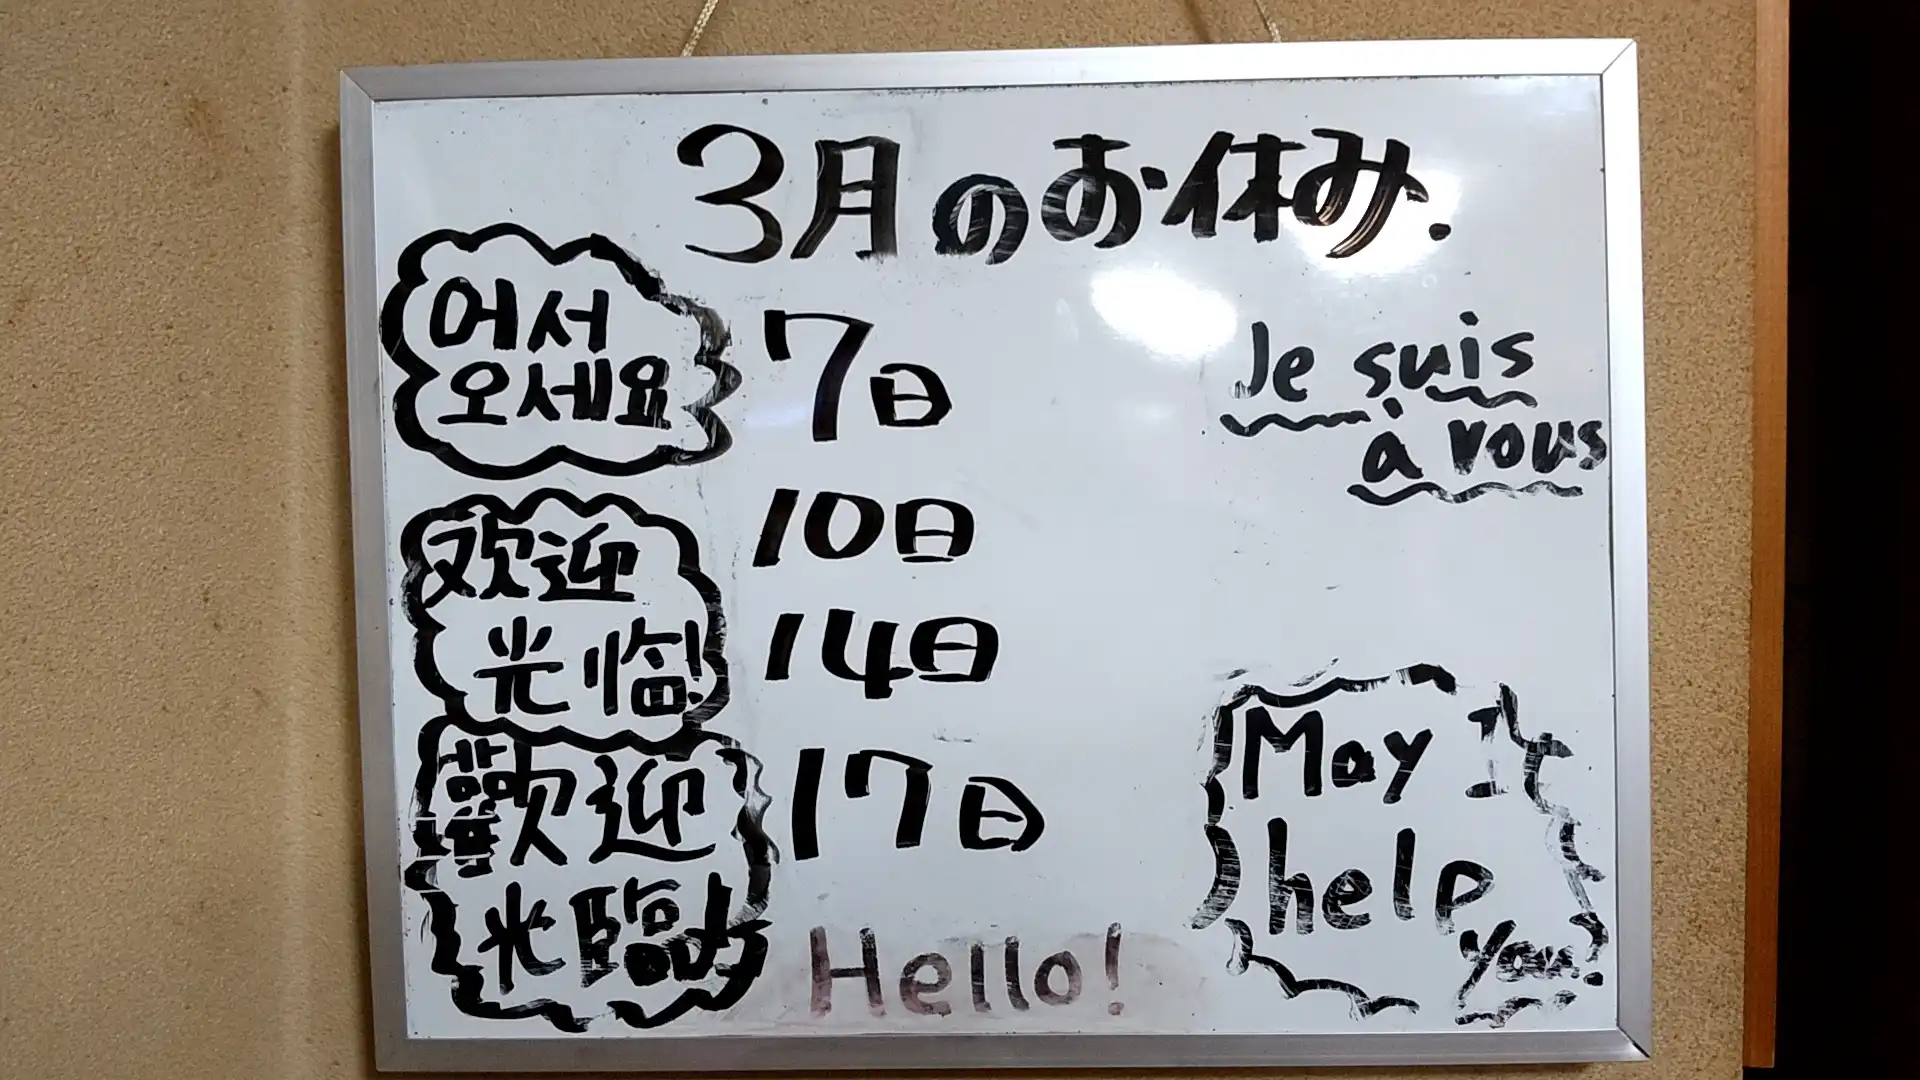 3月のお休み.
어서
오세요
欢迎
光临!
歡迎
光臨!
7日
10日
14日
17日
Hello!
Je suis
à vous
May I
help
you?